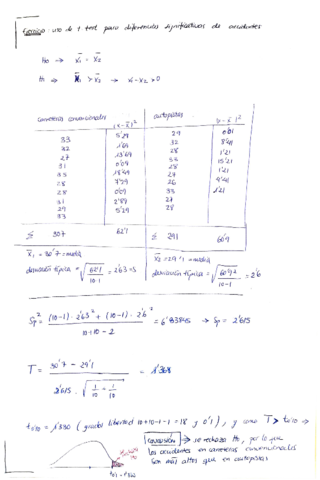 Ejercicio: uso de t-test para diferencias significativas de accidentes
Ho → x̄₁ = x̄₂
H₁ → x̄₁ > x̄₂ → x₁-x₂ > 0
carreteras convencionales (x-x̄)² autopistas (x-x̄)²
33 5'29 29 0'01
32 1'69 32 8'41
27 13'69 28 1'21
31 0'09 33 15'21
35 18'49 28 1'21
28 7'29 27
0'09 26
31 2'89 33 1'21
29 5'29 27
33 28
Σ 307 62'1 Σ 291 60'9
x̄₁ = 30'7 = media x̄₂ = 29'1 = media
desviación típica = √62'1/10-1 = 2'63 desviación típica = √60'9/10-1 = 2'6
Sp² = (10-1)·2'63² + (10-1)·2'6²/10+10-2 = 6'83845 → Sp = 2'615
T = 30'7 - 29'1/2'615·√1/10 + 1/10 = 1'368
t₀'₁₀ = 1'330 (grados libertad 10+10-1-1 = 18 y 0'1), y como T > t₀'₁₀ →
conclusión → se rechaza Ho, por lo que
los accidentes en carreteras convencionales
son más altos que en autopistas